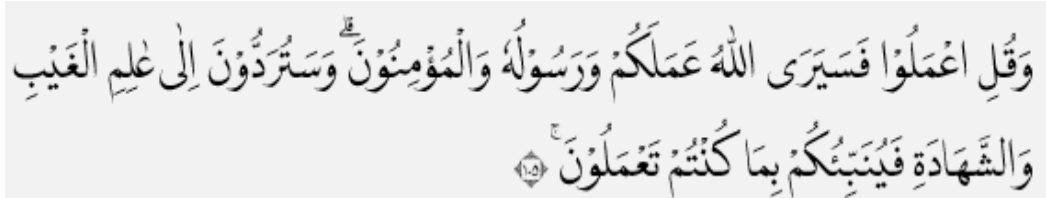 وَقُلِ اعْمَلُوْا فَسَيَرَى اللّٰهُ عَمَلَكُمْ وَرَسُوْلُهٗ وَالْمُؤْمِنُوْنَۗ وَسَتُرَدُّوْنَ اِلٰى عٰلِمِ الْغَيْبِ
وَالشَّهَادَةِ فَيُنَبِّئُكُمْ بِمَا كُنْتُمْ تَعْمَلُوْنَۚ ۝١٠٥